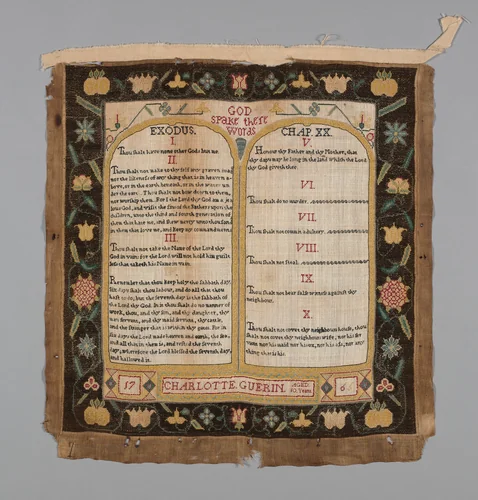 GOD
Spake these
Words
EXODUS.
I.
Thou shalt have none other Gods but me.
II.
Thou shalt not make to thy self any graven image
nor the likeness of any thing that is in heaven a-
bove, or in the earth beneath, or in the water un-
der the earth. Thou shalt not bow down to them,
nor worship them. For I the Lord thy God am a jea
lous God, and visit the sins of the Fathers upon the
children, unto the third and fourth generation of
them that hate me, and shew mercy unto thousands
in them that love me, and keep my commandments.
III.
Thou shalt not take the Name of the Lord thy
God in vain: for the Lord will not hold him guilt
less that taketh his Name in vain.
Remember that thou keep holy the Sabbath day.
Six days shalt thou labour, and do all that thou
hast to do, but the seventh day is the Sabbath of
the Lord thy God. In it thou shalt do no manner of
work, thou, and thy son, and thy daughter, thy
man servant, and thy maid servant, thy cattle,
and the stranger that is within thy gates. For in
six days the Lord made heaven and earth, the sea,
and all that in them is, and rested the seventh
day; wherefore the Lord blessed the seventh day,
and hallowed it.
CHAP. XX.
V.
Honour thy Father and thy Mother, that
thy days may be long in the land which the Lord
thy God giveth thee.
VI.
Thou shalt do no murder.
VII.
Thou shalt not commit adultery.
VIII.
Thou shalt not steal.
IX.
Thou shalt not bear false witness against thy
neighbour.
X.
Thou shalt not covet thy neighbours house, thou
shalt not covet thy neighbours wife, nor his ser
vant nor his maid nor his ox, nor his ass, nor any
thing that is his.
17 CHARLOTTE GUERIN AGED
10 Years